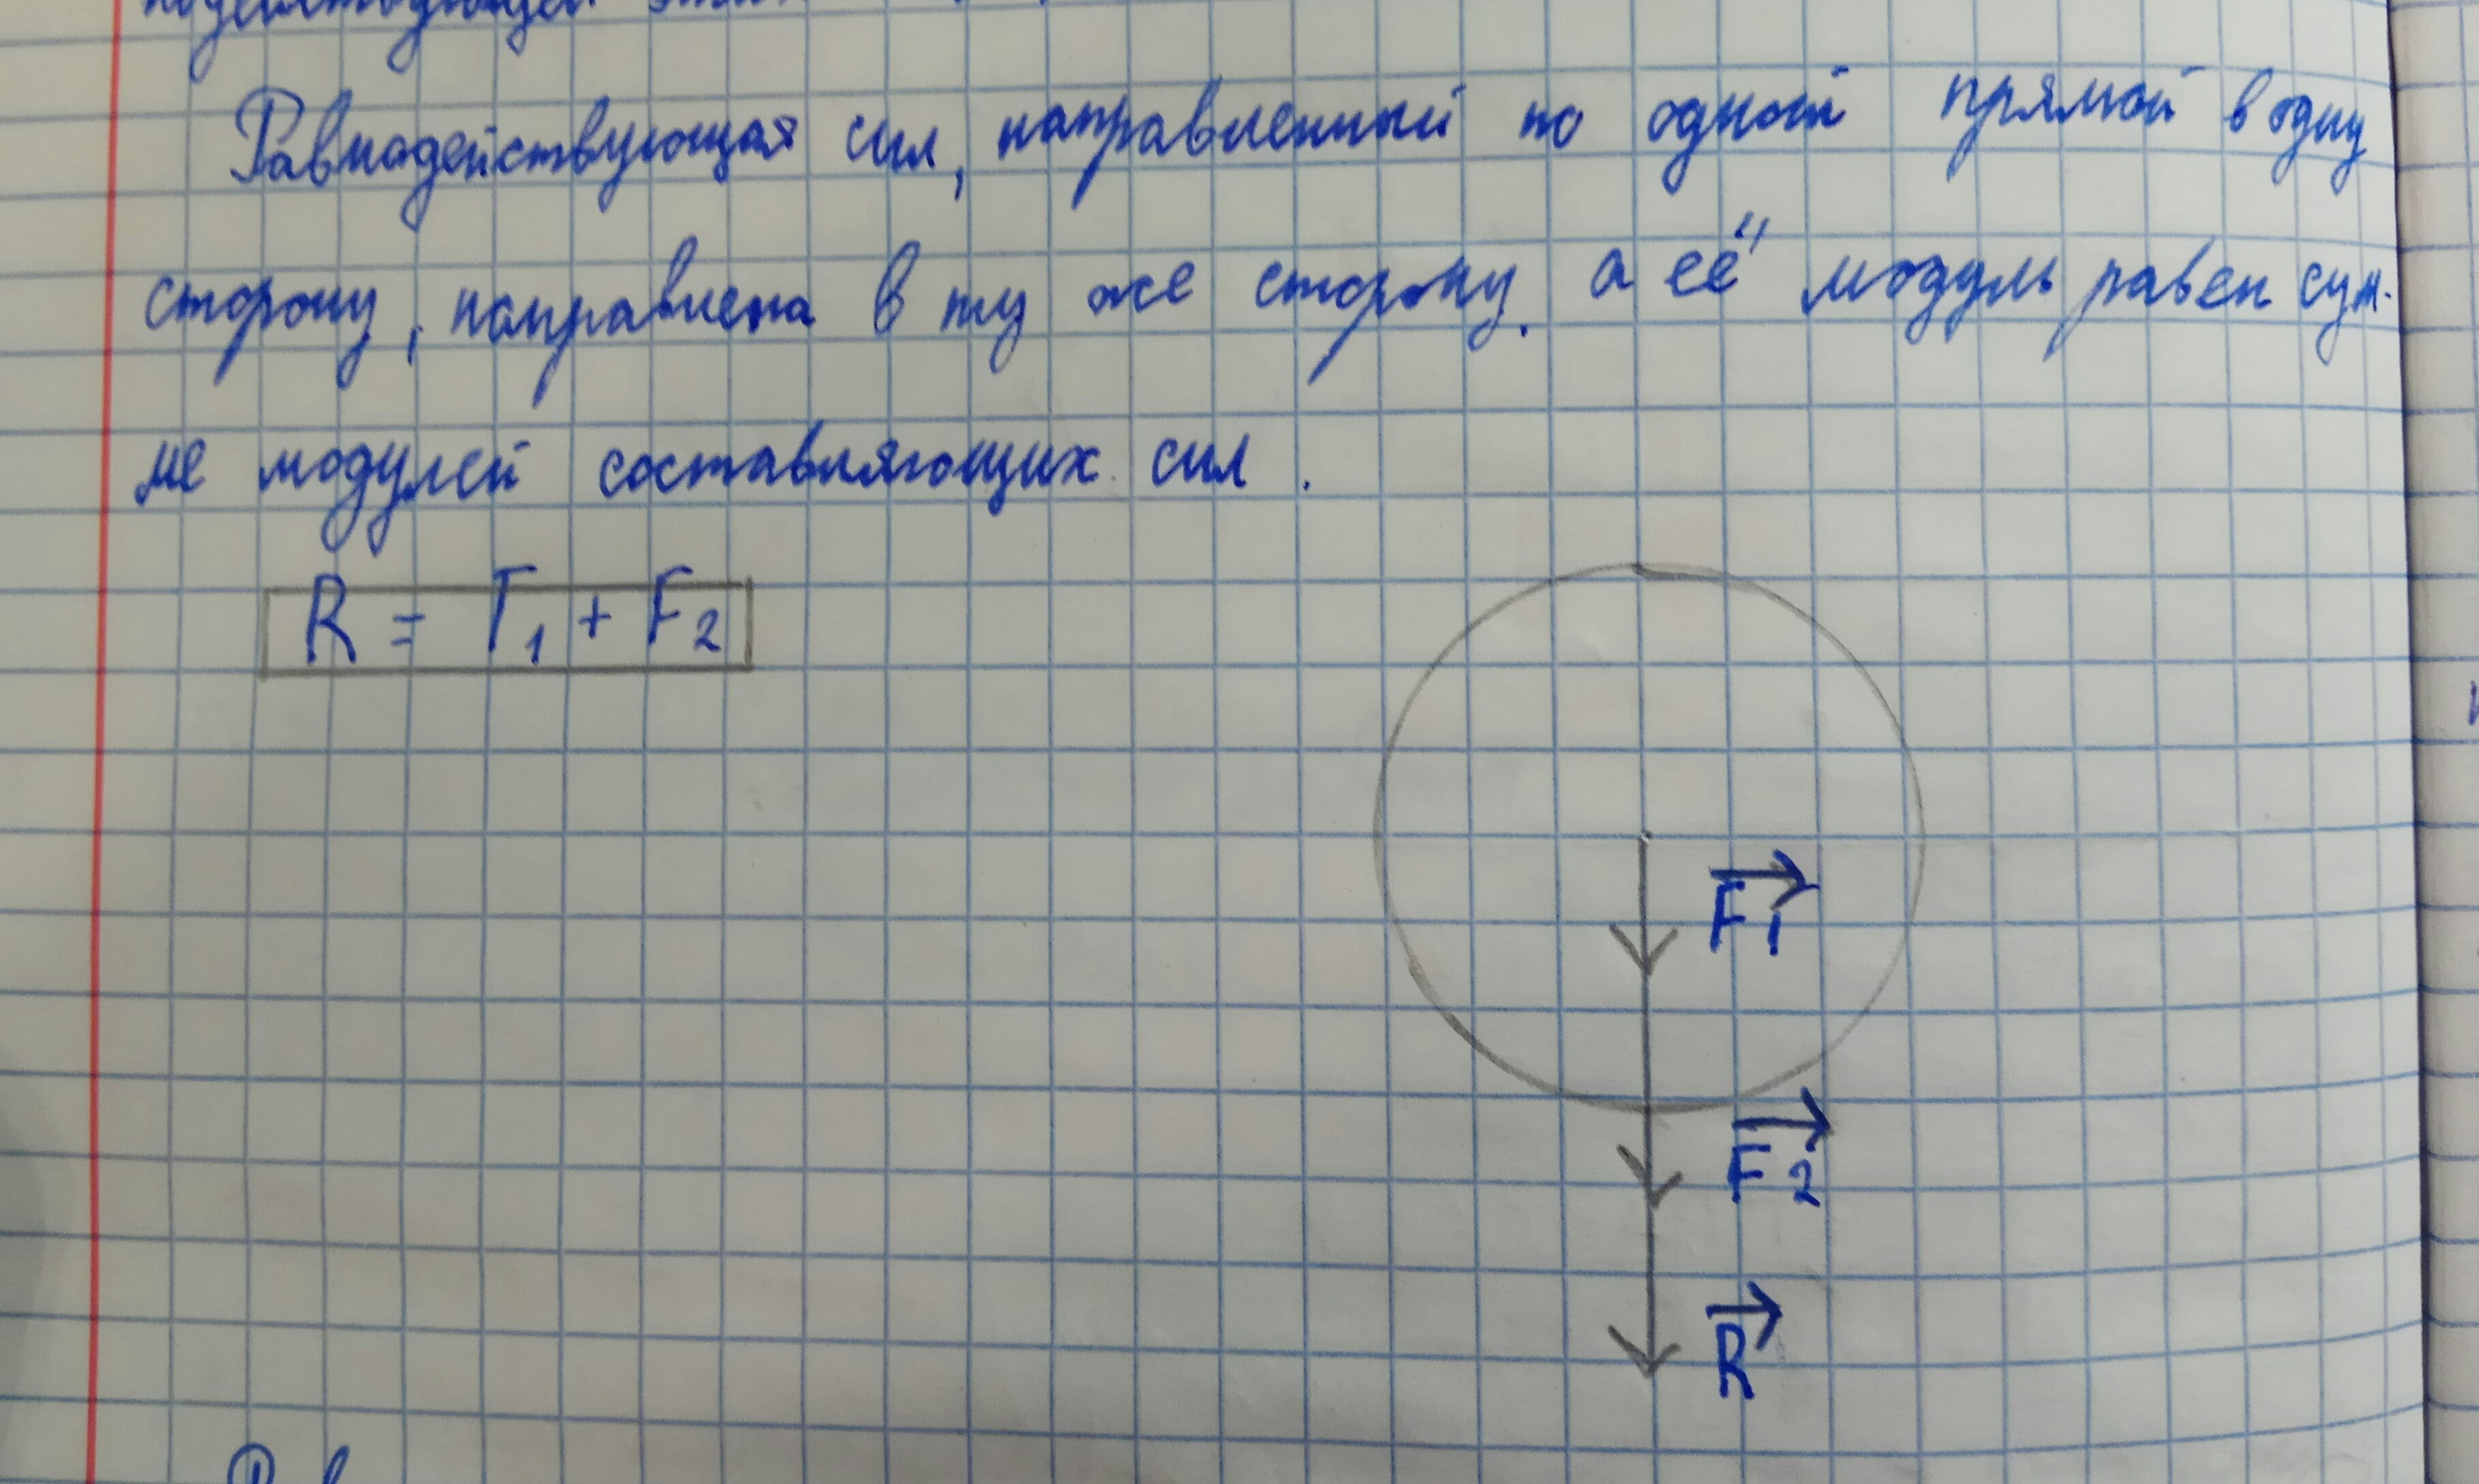 Равнодействующая сил, направленный по одной прямой в одну
сторону, направлена в ту же сторону, а её модуль равен сум-
ме модулей составляющих сил.
R = F₁ + F₂
F₁
F₂
R